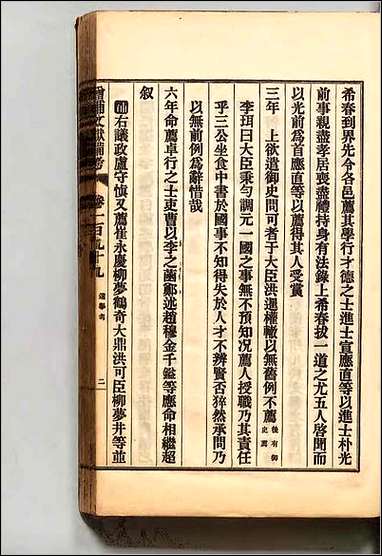 希春到界先令各邑薦其學行才德之士進士宣應直等以進士朴光
前事親盡孝居喪盡禮持身有法錄上希春拔一道之尤五人啓聞而
以光前爲首應直等以薦得其人受賞
三年　上欲遣御史問可者于大臣洪暹權轍以無舊例不薦後有御史薦
李珥曰大臣秉匀調元一國之事無不預知况薦人授職乃其責任
乎三公坐食中書於國事不知得失於人才不辨賢否猝然承問乃
以無前例爲辭惜哉
六年命薦卓行之士吏曹以李之菡鄭逑趙穆金千鎰等應命相繼超
叙
補右議政盧守愼又薦崔永慶柳夢鶴奇大鼎洪可臣柳夢井等並
增補文獻備考　卷一百九十九　選擧考　二